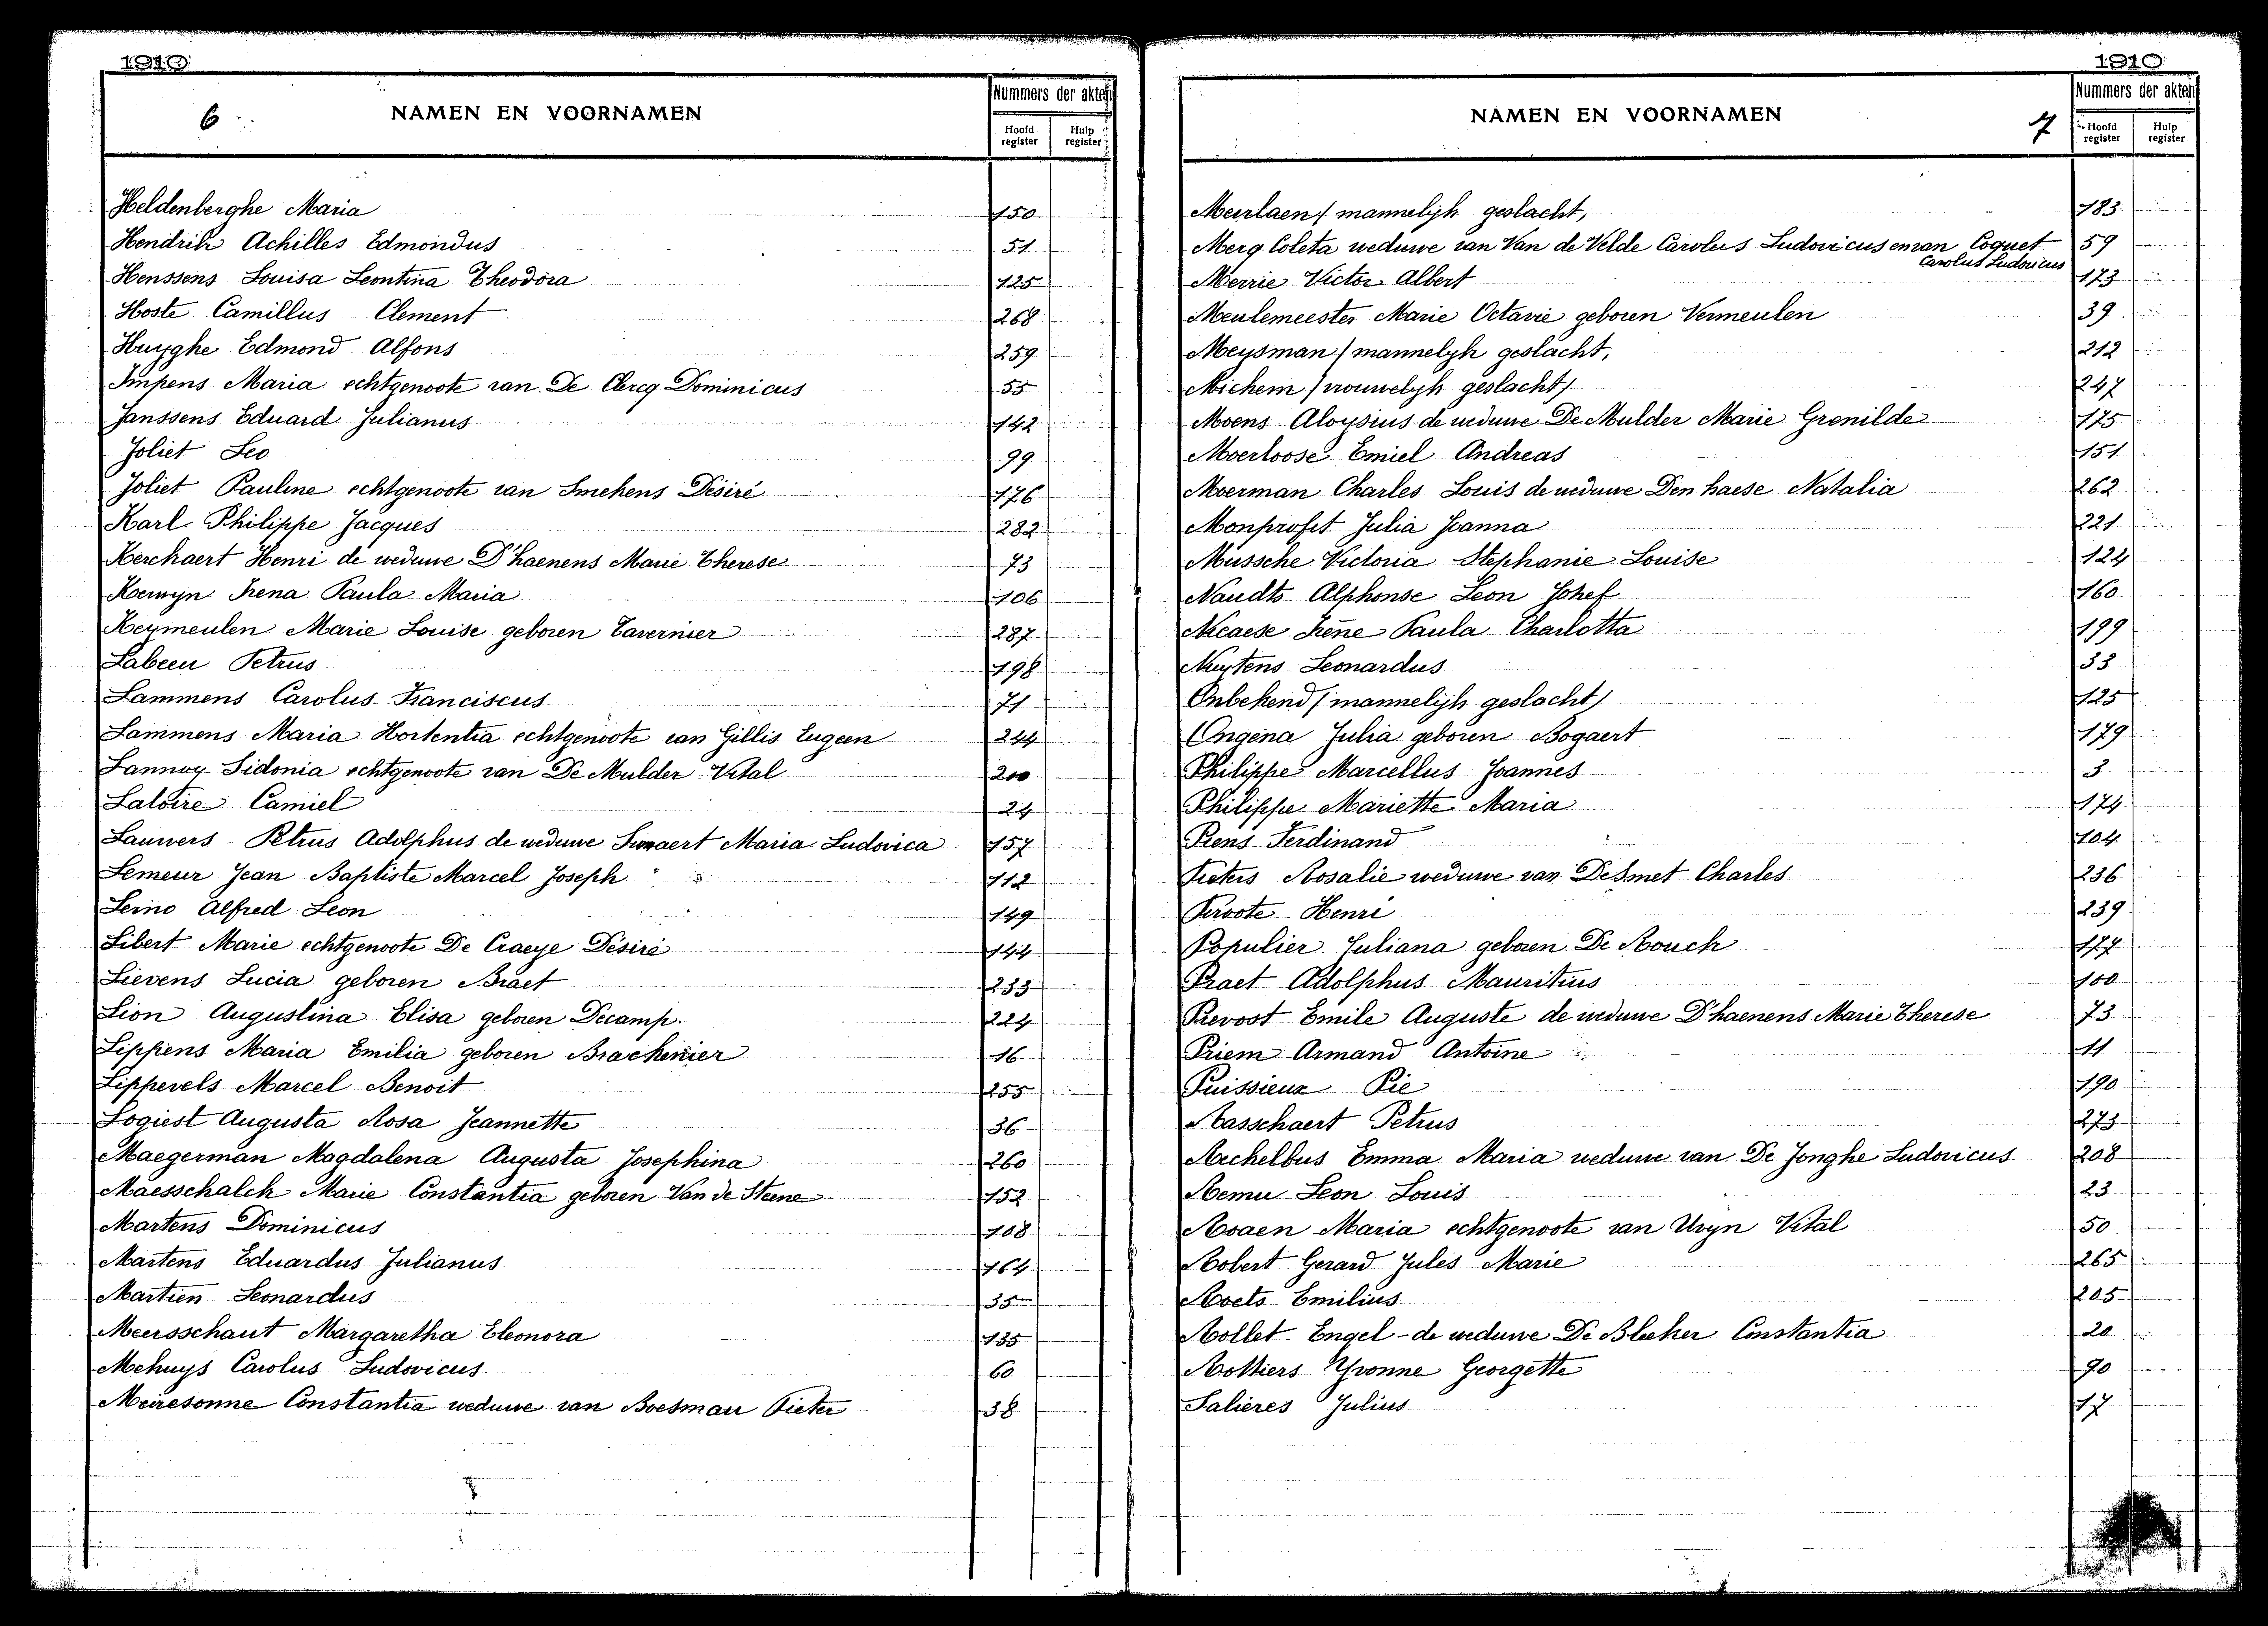 1910
6
NAMEN EN VOORNAMEN
Nummers der akten
Hoofd register
Hulp register
Heldenberghe Maria 150
Hendrik Achilles Edmondus 51
Henssens Louisa Leontina Theodora 125
Hoste Camillus Clement 268
Huyghe Edmond Alfons 259
Impens Maria echtgenoote van De Clercq Dominicus 55
Janssens Eduard Julianus 142
Joliet Leo 99
Joliet Pauline echtgenoote van Smekens Désiré 176
Karl Philippe Jacques 282
Kerckaert Henri de weduwe D'haenens Marie Therese 73
Kerwyn Irena Paula Maria 106
Keymeulen Marie Louise geboren Tavernier 287
Labeeu Petrus 198
Lammens Carolus Franciscus 71
Lammens Maria Hortentia echtgenoote van Gillis Eugeen 244
Lannoy Sidonia echtgenoote van De Mulder Vital 200
Latoire Camiel 24
Lauwers - Petrus Adolphus de weduwe Maria Ludovica 157
Lemeur Jean Baptiste Marcel Joseph 112
Leino Alfred Leon 149
Libert Marie echtgenoote De Craeye Désiré 144
Lievens Lucia geboren Braet 233
Lion Augustina Elisa geboren Decamp. 224
Lippens Maria Emilia geboren Brackenier 16
Lippevels Marcel Benoit 255
Logiest Augusta Rosa Jeannette 36
Maegerman Magdalena Augusta Josephina 260
Maesschalck Marie Constantia geboren Van de Steene 152
Martens Dominicus 108
Martens Eduardus Julianus 164
Martien Leonardus 35
Meersschaut Margaretha Eleonora 135
Mehuys Carolus Ludovicus 60
Meiresonne Constantia weduwe van Boesman Pieter 38
1910
NAMEN EN VOORNAMEN
7
Nummers der akten
Hoofd register
Hulp register
Meirlaen / mannelijk geslacht, 183
Merg Coleta weduwe van Van de Velde Carolus Ludovicus en van Coquet 59
Carolus Ludovicus
Merrie Victor Albert 173
Meulemeester Marie Octavie geboren Vermeulen 39
Meysman / mannelyk geslacht, 212
Michem / vrouwelyk geslacht / 247
Moens Aloysius de weduwe De Mulder Marie Gronilde 175
Moerloose Emiel Andreas 151
Moerman Charles Louis de weduwe Den haese Natalia 262
Monprofit Julia Joanna 221
Mussche Victoria Stephanie Louise 124
Naudts Alphonse Leon Johef 160
Nicaese Irène Paula Charlotta 199
Nuytens Leonardus 33
Onbekend / mannelijk geslacht / 125
Ongena Julia geboren Bogaert 179
Philippe Marcellus Joannes 3
Philippe Mariette Maria 174
Piens Ferdinand 104
Pieters Rosalie weduwe van De Smet Charles 236
Piroote Henri 239
Populier Juliana geboren De Rouck 177
Praet Adolphus Mauritius 100
Prevost Emile Auguste de weduwe D'haenens Marie Therese 73
Priem Armand Antoine 11
Puissieux Pie 190
Rasschaert Petrus 273
Rechelbus Emma Maria weduwe van De Jonghe Ludovicus 208
Remu Leon Louis 23
Roaen Maria echtgenoote van Uvyn Vital 50
Robert Gerard Jules Marie 265
Roets Emilius 205
Rollet Engel - de weduwe De Bleeker Constantia 20
Rottiers Yvonne Georgette 90
Salieres Julius 17